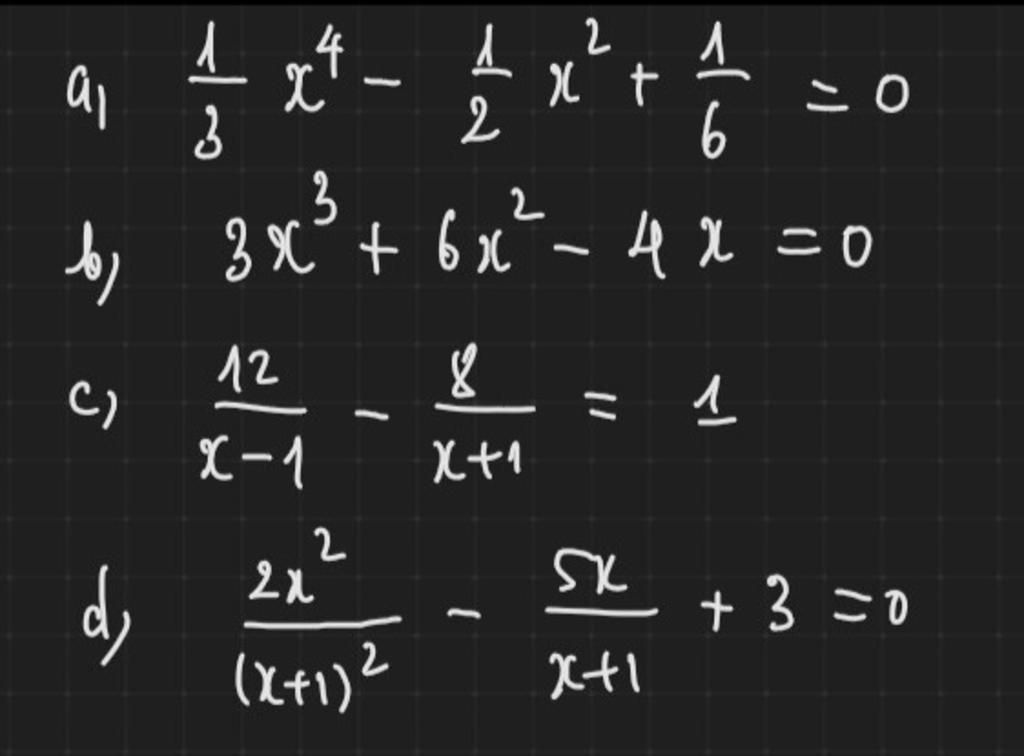 a, 1/3 x^4 - 1/2 x^2 + 1/6 = 0
b, 3x^3 + 6x^2 - 4x = 0
c, 12/(x-1) - 8/(x+1) = 1
d, 2x^2/(x+1)^2 - 5x/(x+1) + 3 = 0